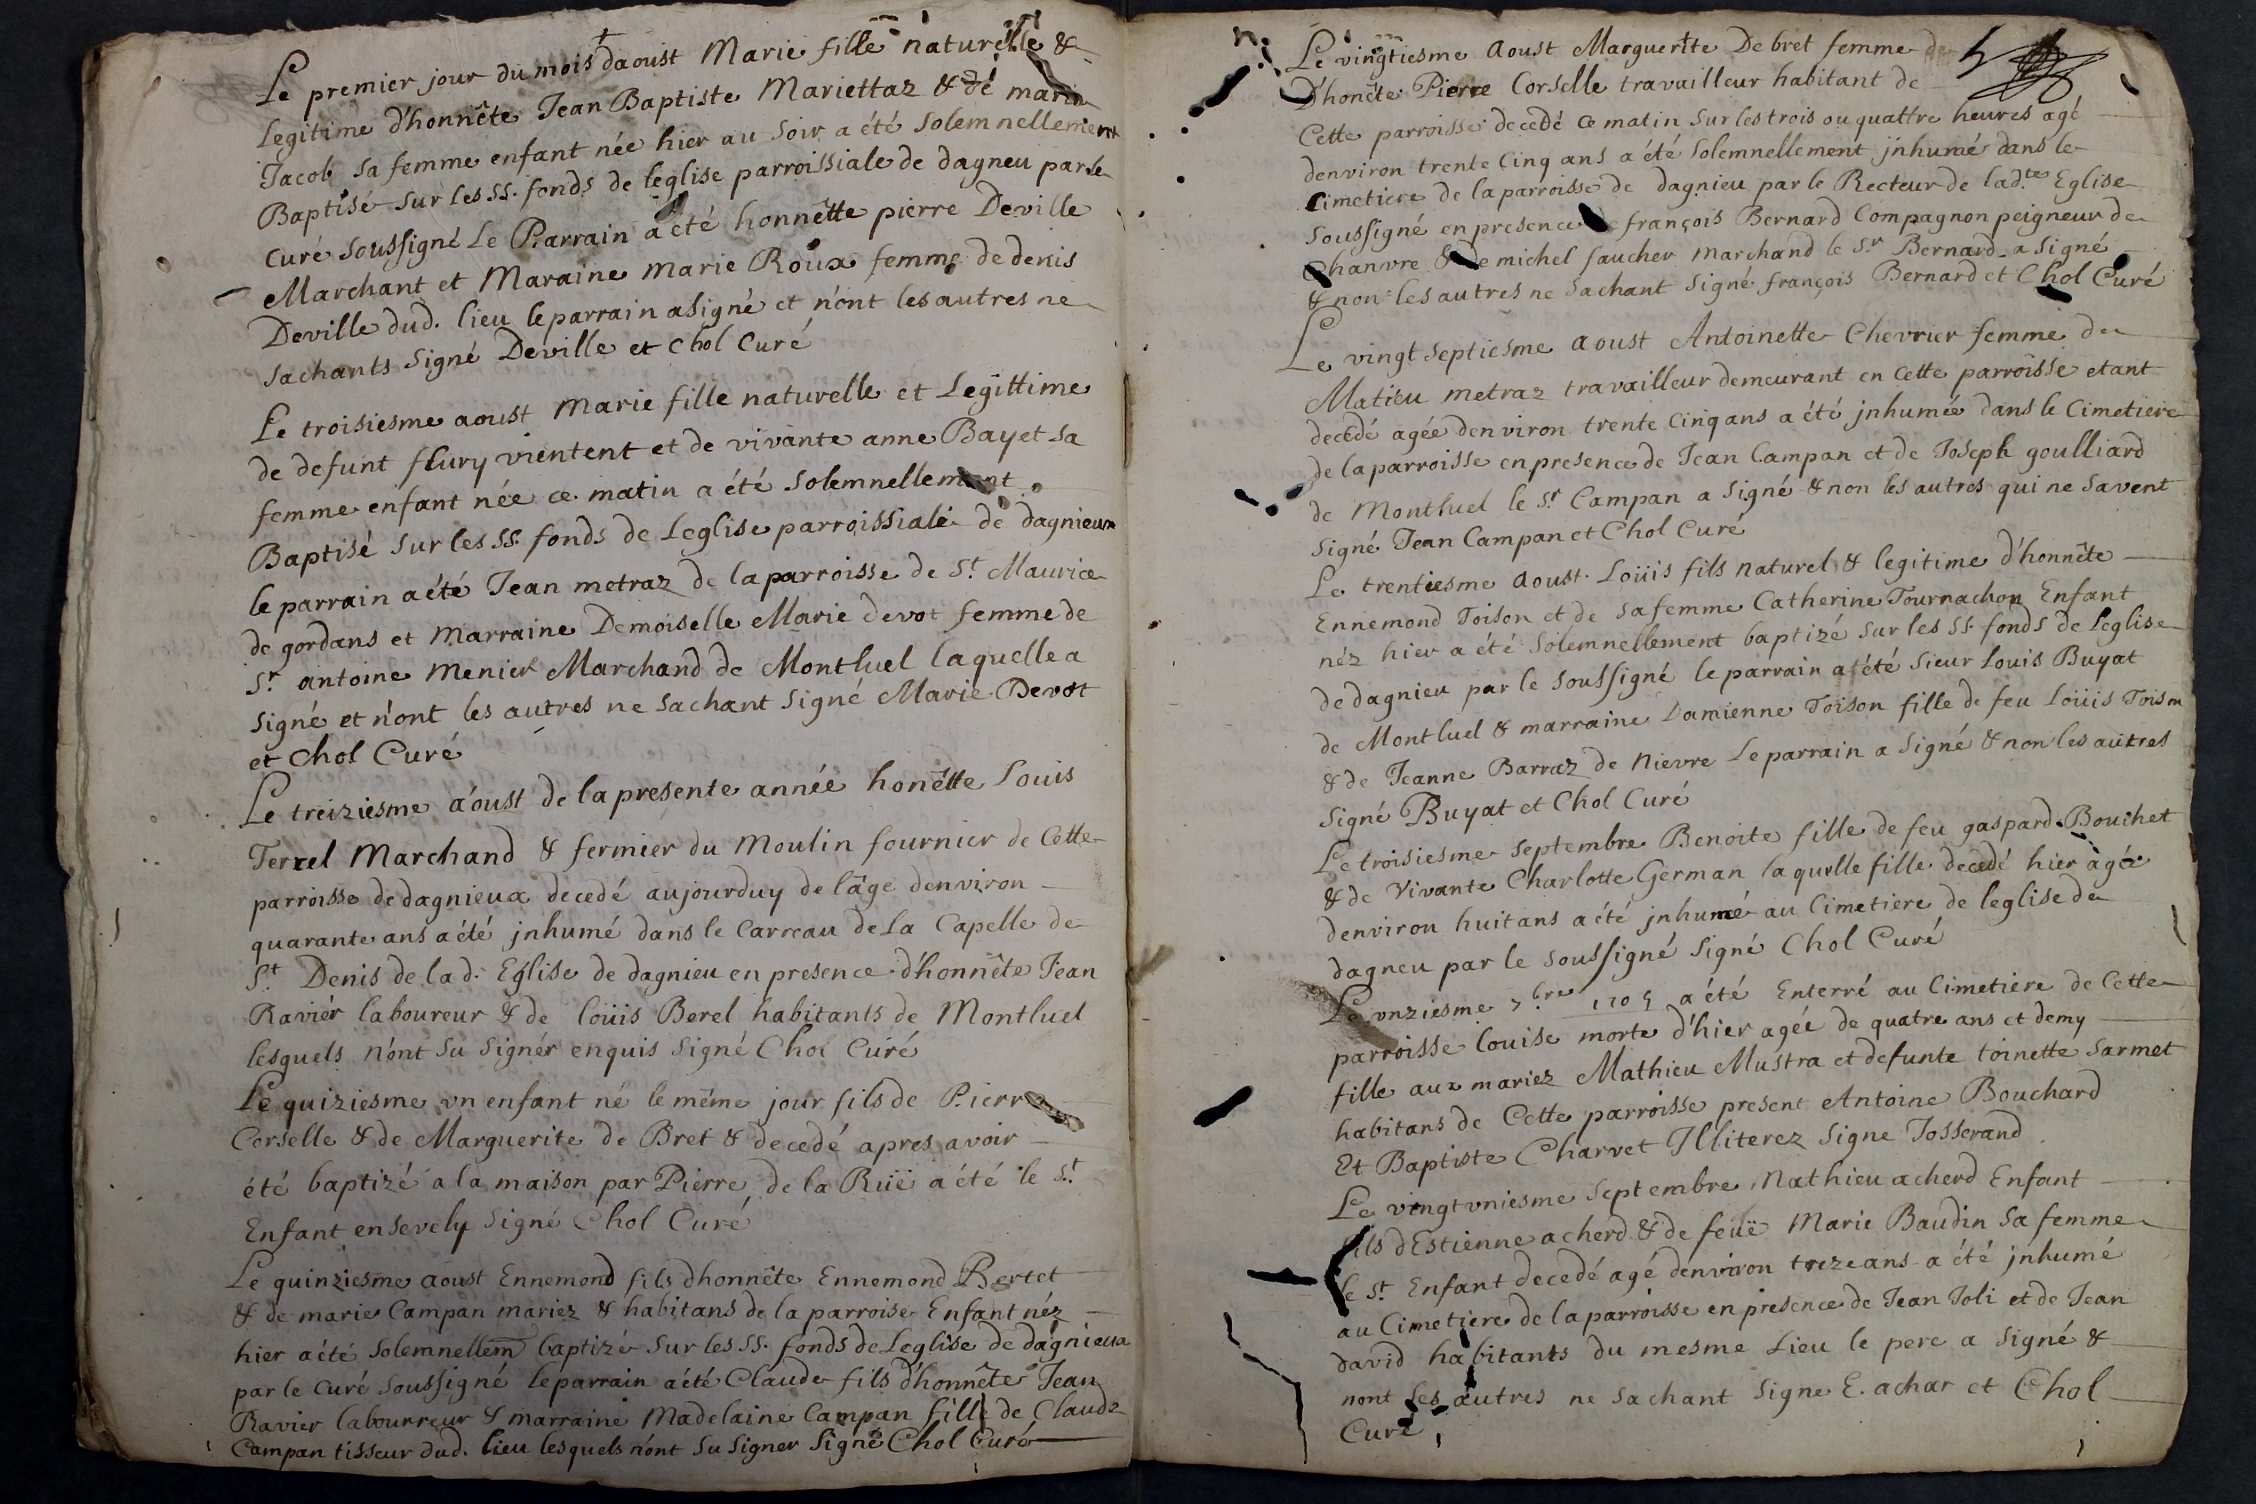 Le premier jour du mois daoust Marie fille naturelle &
Legitime d'honnête Jean Baptiste Mariettaz & de marie
Jacob sa femme enfant née hier au soir a été solemnellement
Baptisé sur les SS. fonds de leglise parroissiale de dagneu par le
curé soussigné Le Parrain a été honnêtte pierre Deville
Marchant et Maraine Marie Roux femme de denis
Deville dud. lieu le parrain a signé et n'ont les autres ne
sachants signé Deville et Chol Curé
Le troisiesme aoust Marie fille naturelle et Legittime
de defunt flury vientent et de vivante anne Bayet sa
femme enfant née ce matin a été solemnellement
Baptisé sur les SS. fonds de Leglise parroissiale de dagnieux
le parrain a été Jean metraz de la parroisse de St. Maurice
de gordans et Marraine Demoiselle Marie devot femme de
Sr. antoine Menier Marchand de Montluel laquelle a
signé et n'ont les autres ne sachant signé Marie Devot
et Chol Curé
Le treiziesme a'oust de la presente année honêtte Louis
Terrel Marchand & fermier du Moulin fournier de Cette
parroisse de dagnieux decedé aujourduy de lâge denviron
quarante ans a été jnhumé dans le Carreau de La Capelle de
St. Denis de lad. Eglise de dagnieu en presence d'honnête Jean
Raviér laboureur & de loüis Berel habitants de Montluel
lesquels n'ont su signér enquis signé Chol Curé
Le quiziesme un enfant né le même jour fils de Pierre
Corselle & de Marguerite de Bret & decedé apres avoir
été baptizé a la maison par Pierre de la Ruë a été le St.
Enfant ensevely signé Chol Curé
Le quinziesme aoust Ennemond fils dhonnête Ennemond Bertet
& de marie Campan mariez & habitans de la parroise Enfant néz
hier a été solemnellem baptizé sur les SS. fonds de Leglise de dagnieux
par le curé soussigné le parrain a été Claude fils d'honnête Jean
Ravier labourreur & marraine Madelaine Campan fille de Claude
Campan tisseur dud. lieu lesquels n'ont su signer Signé Chol Curé
Le vingtiesme Aoust Marguerite De bret femme de
D'honête Pierre Corselle travailleur habitant de
Cette parroisse decedé ce matin sur les trois ou quattre heures agé
denviron trente Cinq ans a été solemnellement jnhumé dans le
Cimetiere de la parroisse de dagnieu par le Recteur de lad.te Eglise
soussigné en presence de françois Bernard Compagnon peigneur de
Chanvre & de michel faucher marchand le Sr. Bernard a signé
& non les autres ne sachant signé françois Bernard et Chol Curé
Le vingt septiesme aoust Antoinette Chevrier femme de
Matieu metraz travailleur demeurant en cette parroisse etant
decedé agée denviron trente Cinq ans a été jnhumée dans le Cimetiere
de la parroisse en presence de Jean Campan et de Joseph goulliard
de Montluel le Sr. Campan a signé & non les autres qui ne savent
signé Jean Campan et Chol Curé
Le trentiesme aoust Loüis fils naturel & legitime d'honnête
Ennemond Toison et de sa femme Catherine Tournachon Enfant
néz hier a été solemnellement baptizé sur les SS. fonds de Leglise
de dagnieu par le soussigné le parrain a été sieur Louis Buyat
de Montluel & marraine Damienne Toison fille de feu Loüis Toison
& de Jeanne Barraz de Nievre Le parrain a signé & non les autres
signé Buyat et Chol Curé
Le troisiesme septembre Benoite fille de feu gaspard Bouchet
& de Vivante Charlotte German laquelle fille decedé hier agée
denviron huit ans a été jnhumé au Cimetiere de leglise de
dagneu par le soussigné signé Chol Curé
Le unziesme 7.bre 1705 a été Enterré au Cimetiere de Cette
parroisse Louise morte d'hier agée de quatre ans et demy
fille aux mariez Mathieu Mustra et defunte toinette Sarmet
habitans de Cette parroisse present Antoine Bouchard
Et Baptiste Charvet Jlliterez signe Josserand
Le vingt uniesme septembre Mathieu acherd Enfant
fils dEstienne acherd & de feüe Marie Baudin sa femme
le St. Enfant decedé agé denviron treze ans a été jnhumé
au Cimetiere de la parroisse en presence de Jean Joli et de Jean
david habitants du mesme Lieu le pere a signé &
nont les autres ne sachant signe E. achar et Chol
Curé